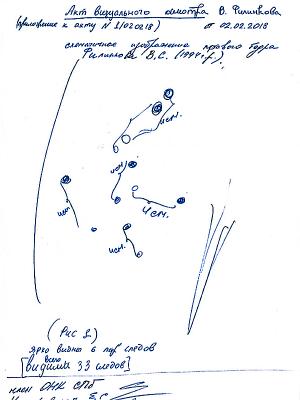 Акт визуального осмотра В. Филинкова
(приложение к акту N 1/020218) от 02.02.2018
схематичное изображение правого бедра
Филинкова В.С. (1994 г.р.)
4 см.
4 см.
4 см.
4 см.
4 см.
(Рис 1.)
ярко видно 6 пар следов
всего
[видимы 33 следов]
член ОНК СПб